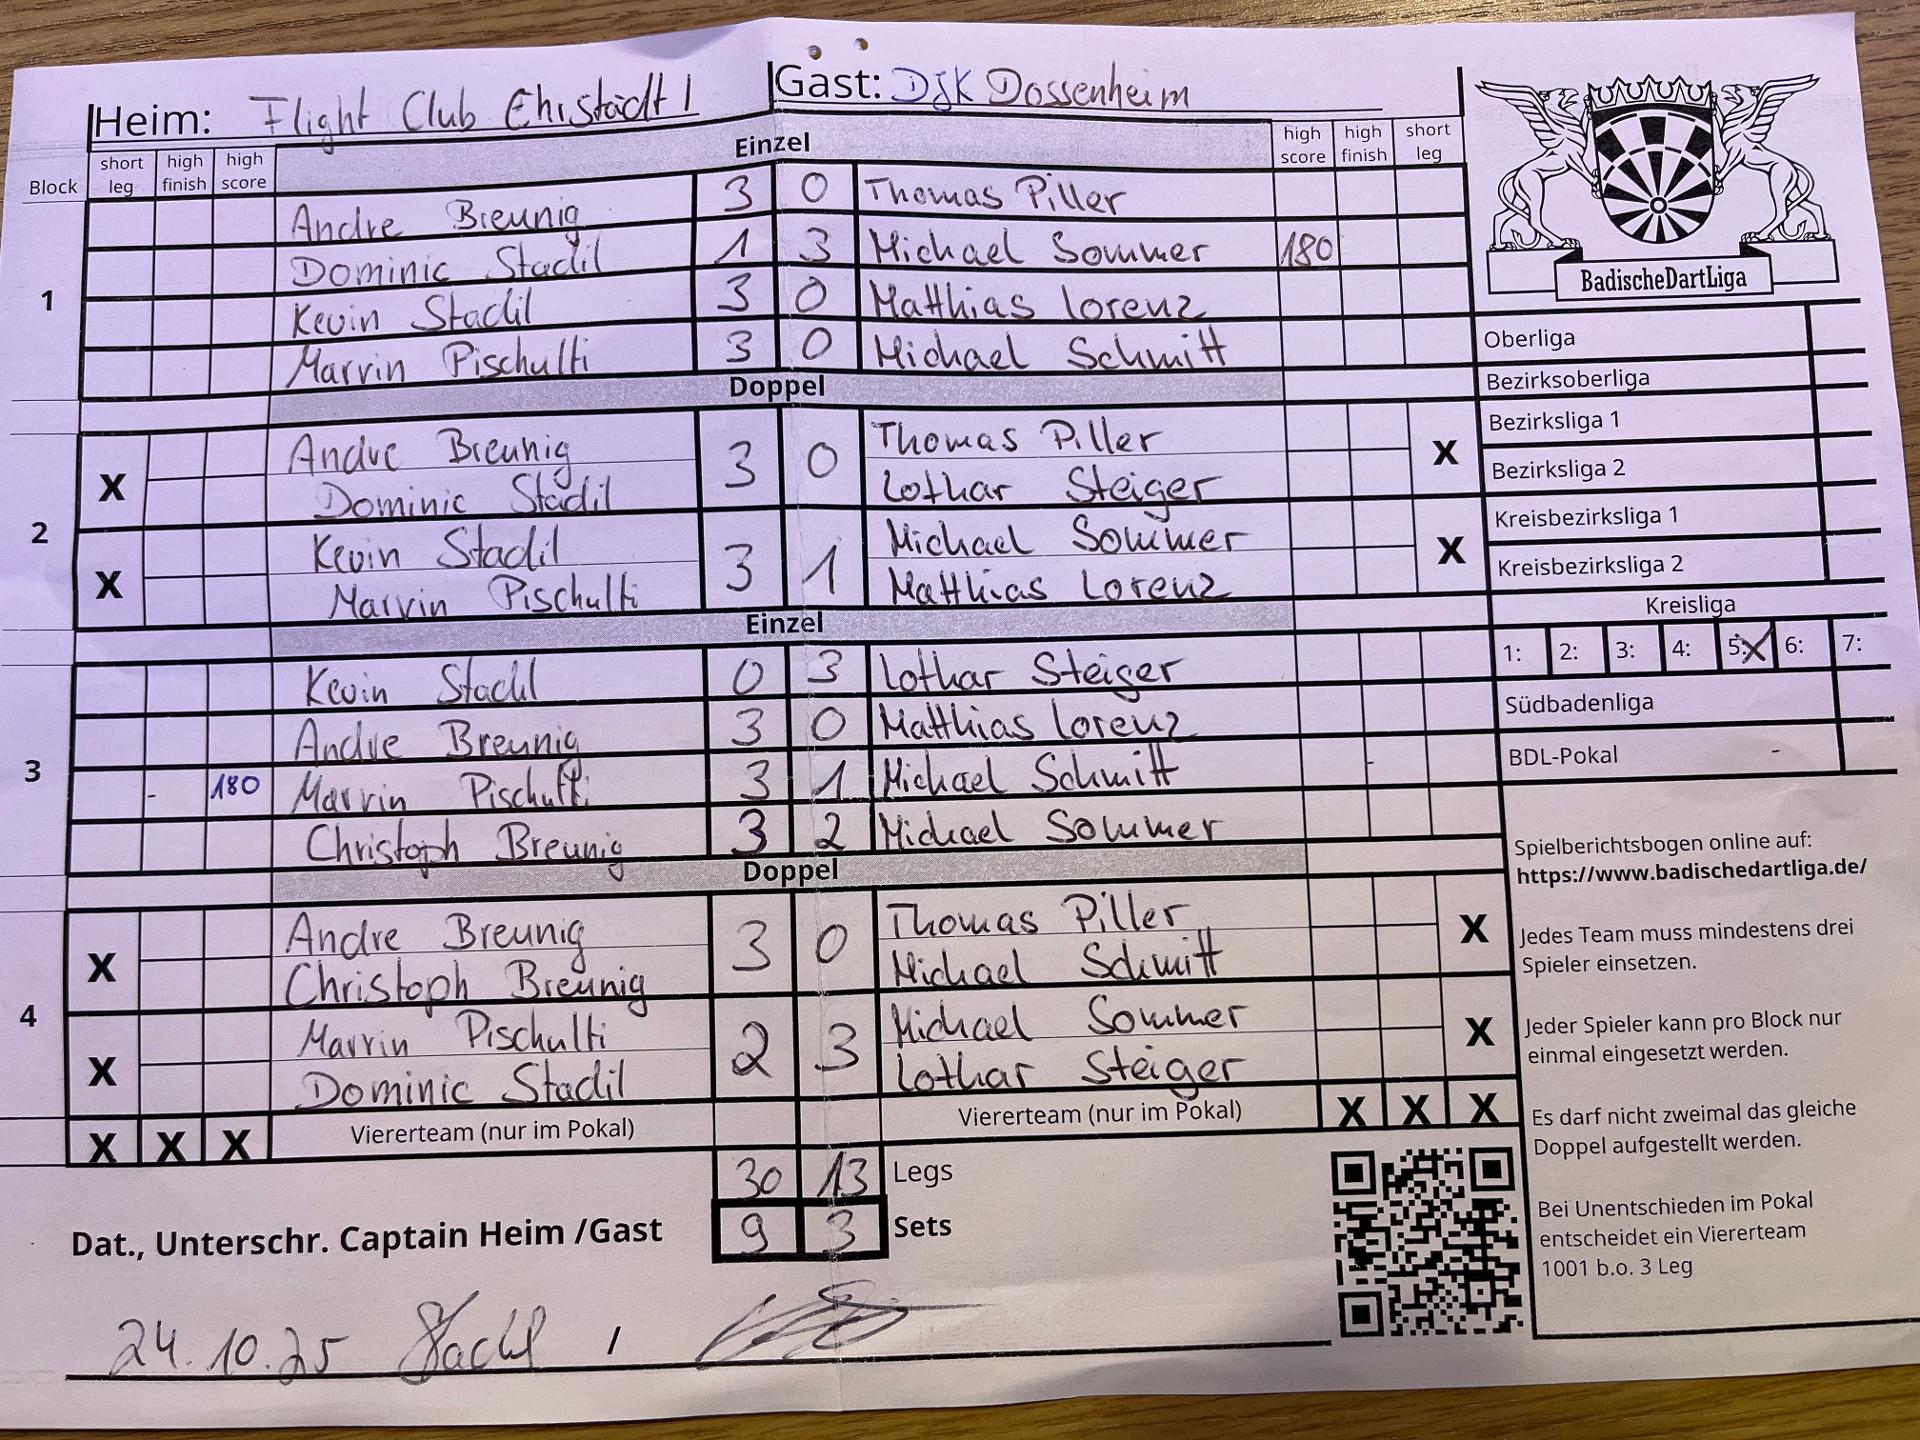 Heim: Flight Club Ehrstädt 1 Gast: DJK Dossenheim
Block short leg high finish high score Einzel high score high finish short leg
1
Andre Breunig 3 0 Thomas Piller
Dominic Stadil 1 3 Michael Sommer 180
Kevin Stadil 3 0 Matthias Lorenz
Marvin Pischulti 3 0 Michael Schmitt
Doppel
2
X Andre Breunig 3 0 Thomas Piller X
Dominic Stadil Lothar Steiger
X Kevin Stadil 3 1 Michael Sommer X
Marvin Pischulti Matthias Lorenz
Einzel
3
Kevin Stadil 0 3 Lothar Steiger
Andre Breunig 3 0 Matthias Lorenz
- 180 Marvin Pischulti 3 1 Michael Schmitt -
Christoph Breunig 3 2 Michael Sommer
Doppel
4
X Andre Breunig 3 0 Thomas Piller X
Christoph Breunig Michael Schmitt
X Marvin Pischulti 2 3 Michael Sommer X
Dominic Stadil Lothar Steiger
X X X Viererteam (nur im Pokal) Viererteam (nur im Pokal) X X X
30 13 Legs
9 3 Sets
Dat., Unterschr. Captain Heim /Gast
24.10.25 Stadil /
BadischeDartLiga
Oberliga
Bezirksoberliga
Bezirksliga 1
Bezirksliga 2
Kreisbezirksliga 1
Kreisbezirksliga 2
Kreisliga
1: 2: 3: 4: 5: X 6: 7:
Südbadenliga
BDL-Pokal -
Spielberichtsbogen online auf:
https://www.badischedartliga.de/
Jedes Team muss mindestens drei
Spieler einsetzen.
Jeder Spieler kann pro Block nur
einmal eingesetzt werden.
Es darf nicht zweimal das gleiche
Doppel aufgestellt werden.
Bei Unentschieden im Pokal
entscheidet ein Viererteam
1001 b.o. 3 Leg